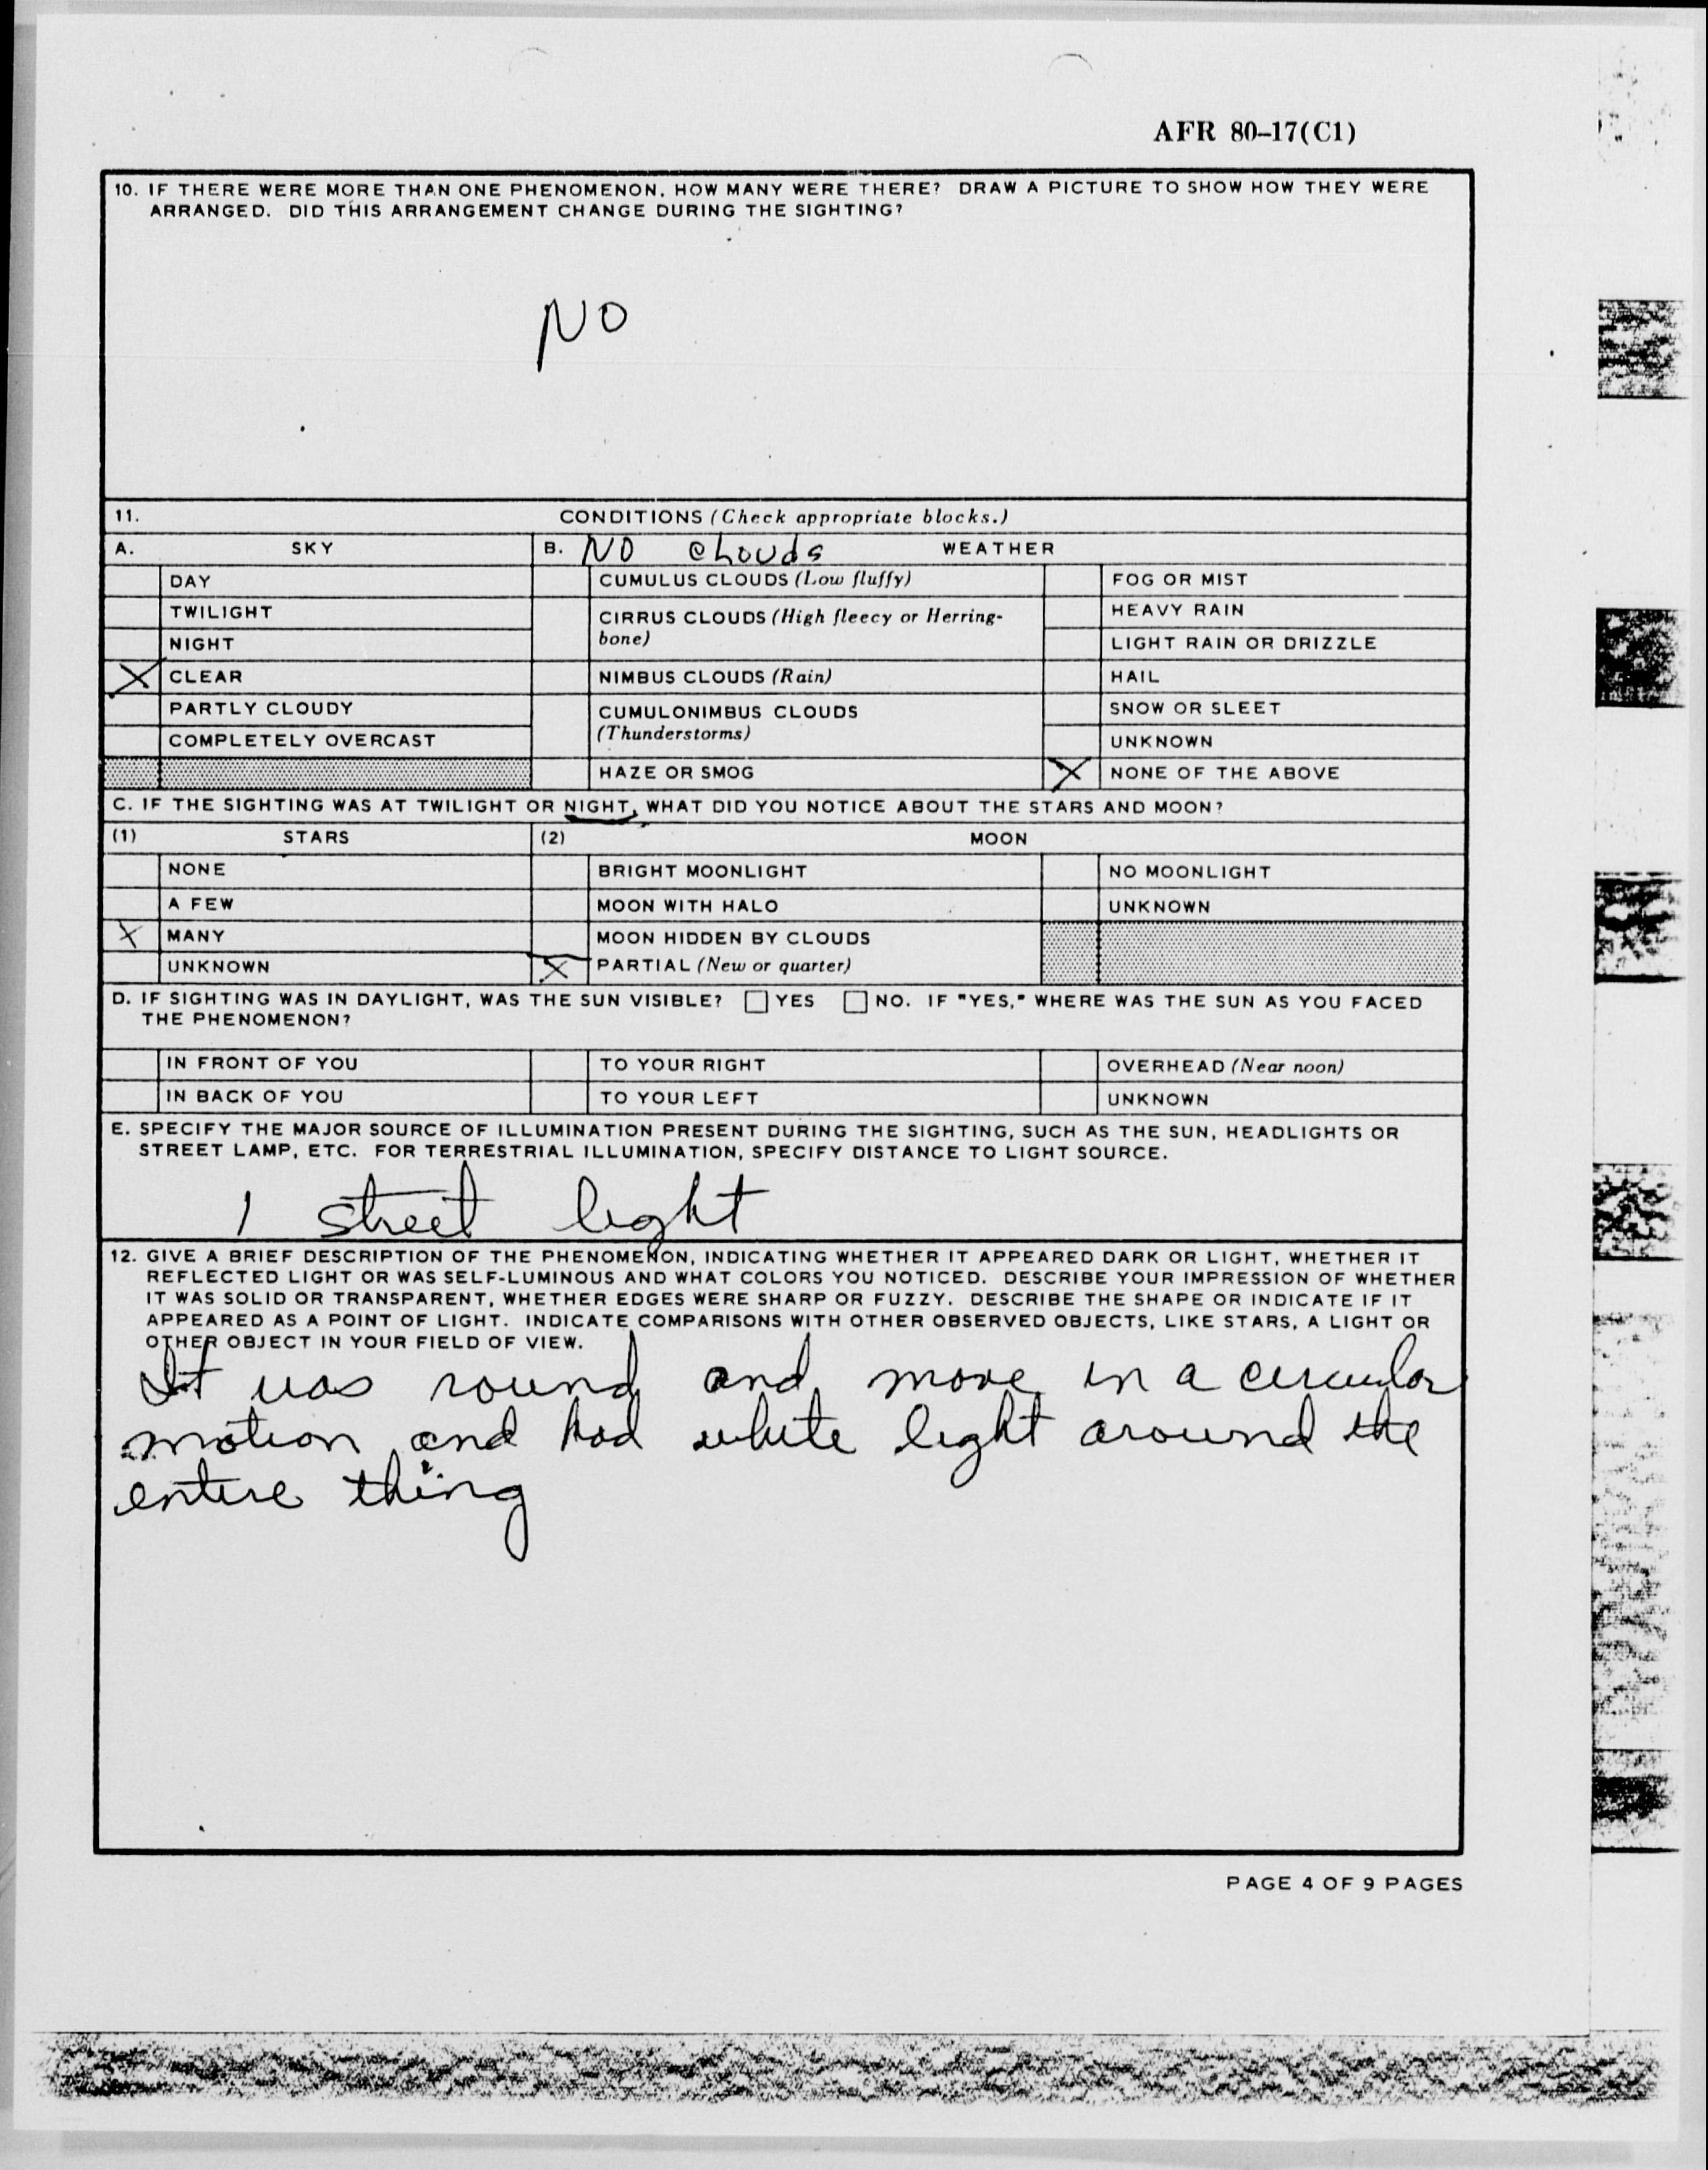 AFR 80-17(C1)
10. IF THERE WERE MORE THAN ONE PHENOMENON, HOW MANY WERE THERE? DRAW A PICTURE TO SHOW HOW THEY WERE
ARRANGED. DID THIS ARRANGEMENT CHANGE DURING THE SIGHTING?
NO
11. CONDITIONS (Check appropriate blocks.)
A. SKY
B. NO cLouds WEATHER
DAY
TWILIGHT
NIGHT
X CLEAR
PARTLY CLOUDY
COMPLETELY OVERCAST
CUMULUS CLOUDS (Low fluffy)
CIRRUS CLOUDS (High fleecy or Herring-
bone)
NIMBUS CLOUDS (Rain)
CUMULONIMBUS CLOUDS
(Thunderstorms)
HAZE OR SMOG
FOG OR MIST
HEAVY RAIN
LIGHT RAIN OR DRIZZLE
HAIL
SNOW OR SLEET
UNKNOWN
X NONE OF THE ABOVE
C. IF THE SIGHTING WAS AT TWILIGHT OR NIGHT, WHAT DID YOU NOTICE ABOUT THE STARS AND MOON?
(1) STARS
(2) MOON
NONE
A FEW
X MANY
UNKNOWN
BRIGHT MOONLIGHT
MOON WITH HALO
MOON HIDDEN BY CLOUDS
X PARTIAL (New or quarter)
NO MOONLIGHT
UNKNOWN
D. IF SIGHTING WAS IN DAYLIGHT, WAS THE SUN VISIBLE? YES NO. IF "YES," WHERE WAS THE SUN AS YOU FACED
THE PHENOMENON?
IN FRONT OF YOU
IN BACK OF YOU
TO YOUR RIGHT
TO YOUR LEFT
OVERHEAD (Near noon)
UNKNOWN
E. SPECIFY THE MAJOR SOURCE OF ILLUMINATION PRESENT DURING THE SIGHTING, SUCH AS THE SUN, HEADLIGHTS OR
STREET LAMP, ETC. FOR TERRESTRIAL ILLUMINATION, SPECIFY DISTANCE TO LIGHT SOURCE.
1 street light
12. GIVE A BRIEF DESCRIPTION OF THE PHENOMENON, INDICATING WHETHER IT APPEARED DARK OR LIGHT, WHETHER IT
REFLECTED LIGHT OR WAS SELF-LUMINOUS AND WHAT COLORS YOU NOTICED. DESCRIBE YOUR IMPRESSION OF WHETHER
IT WAS SOLID OR TRANSPARENT, WHETHER EDGES WERE SHARP OR FUZZY. DESCRIBE THE SHAPE OR INDICATE IF IT
APPEARED AS A POINT OF LIGHT. INDICATE COMPARISONS WITH OTHER OBSERVED OBJECTS, LIKE STARS, A LIGHT OR
OTHER OBJECT IN YOUR FIELD OF VIEW.
It was round and move in a circular
motion and had white light around the
entire thing
PAGE 4 OF 9 PAGES